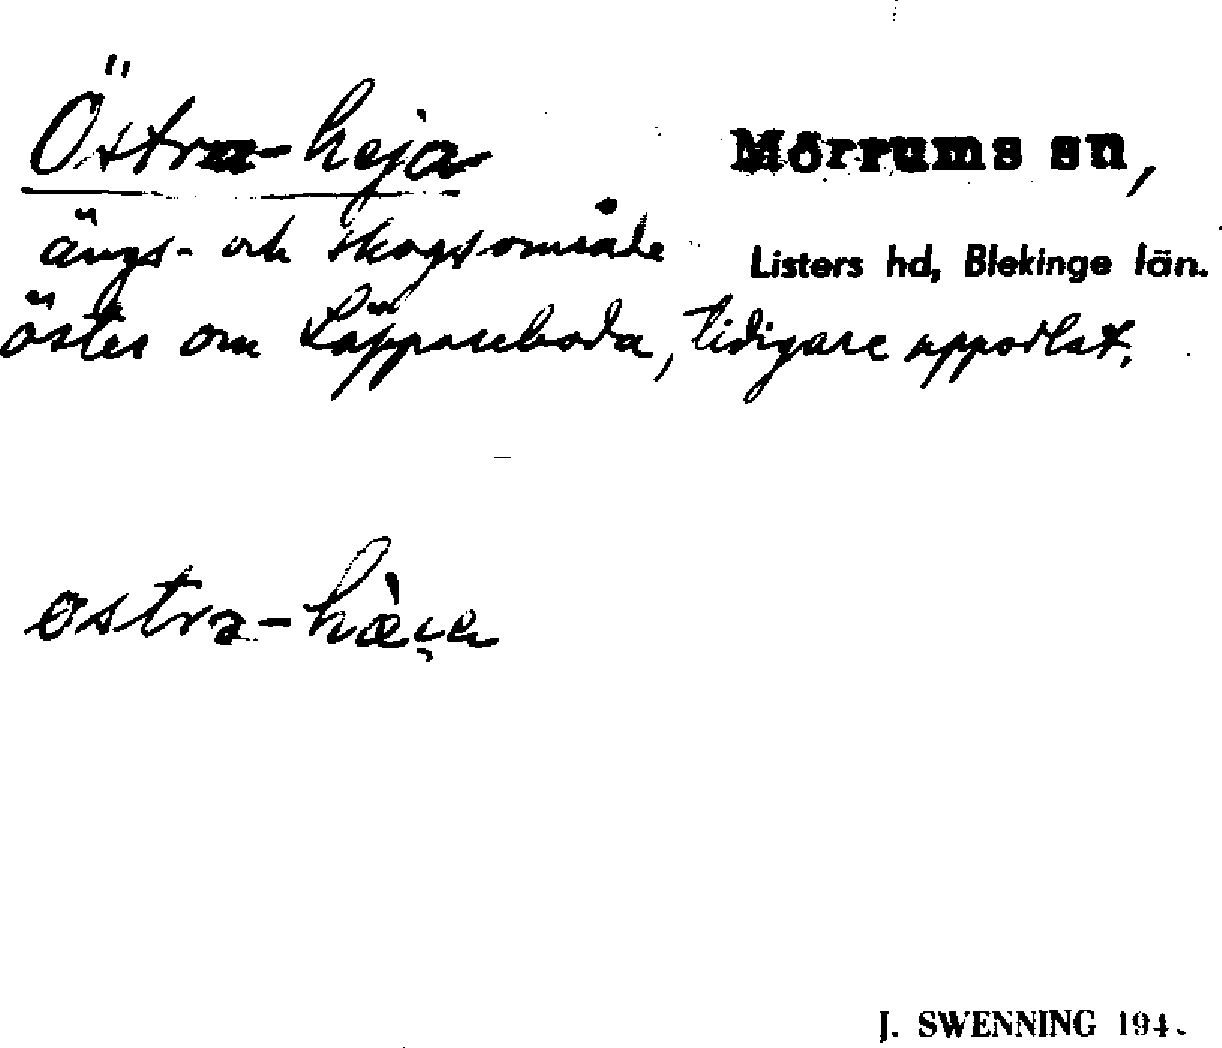 Östra-heja
Mörrums sn,
ängs- och skogsområde
Listers hd, Blekinge län.
öster om Läppareboda, tidigare uppodlat.
östra-hàe̯a
J. SWENNING 194.